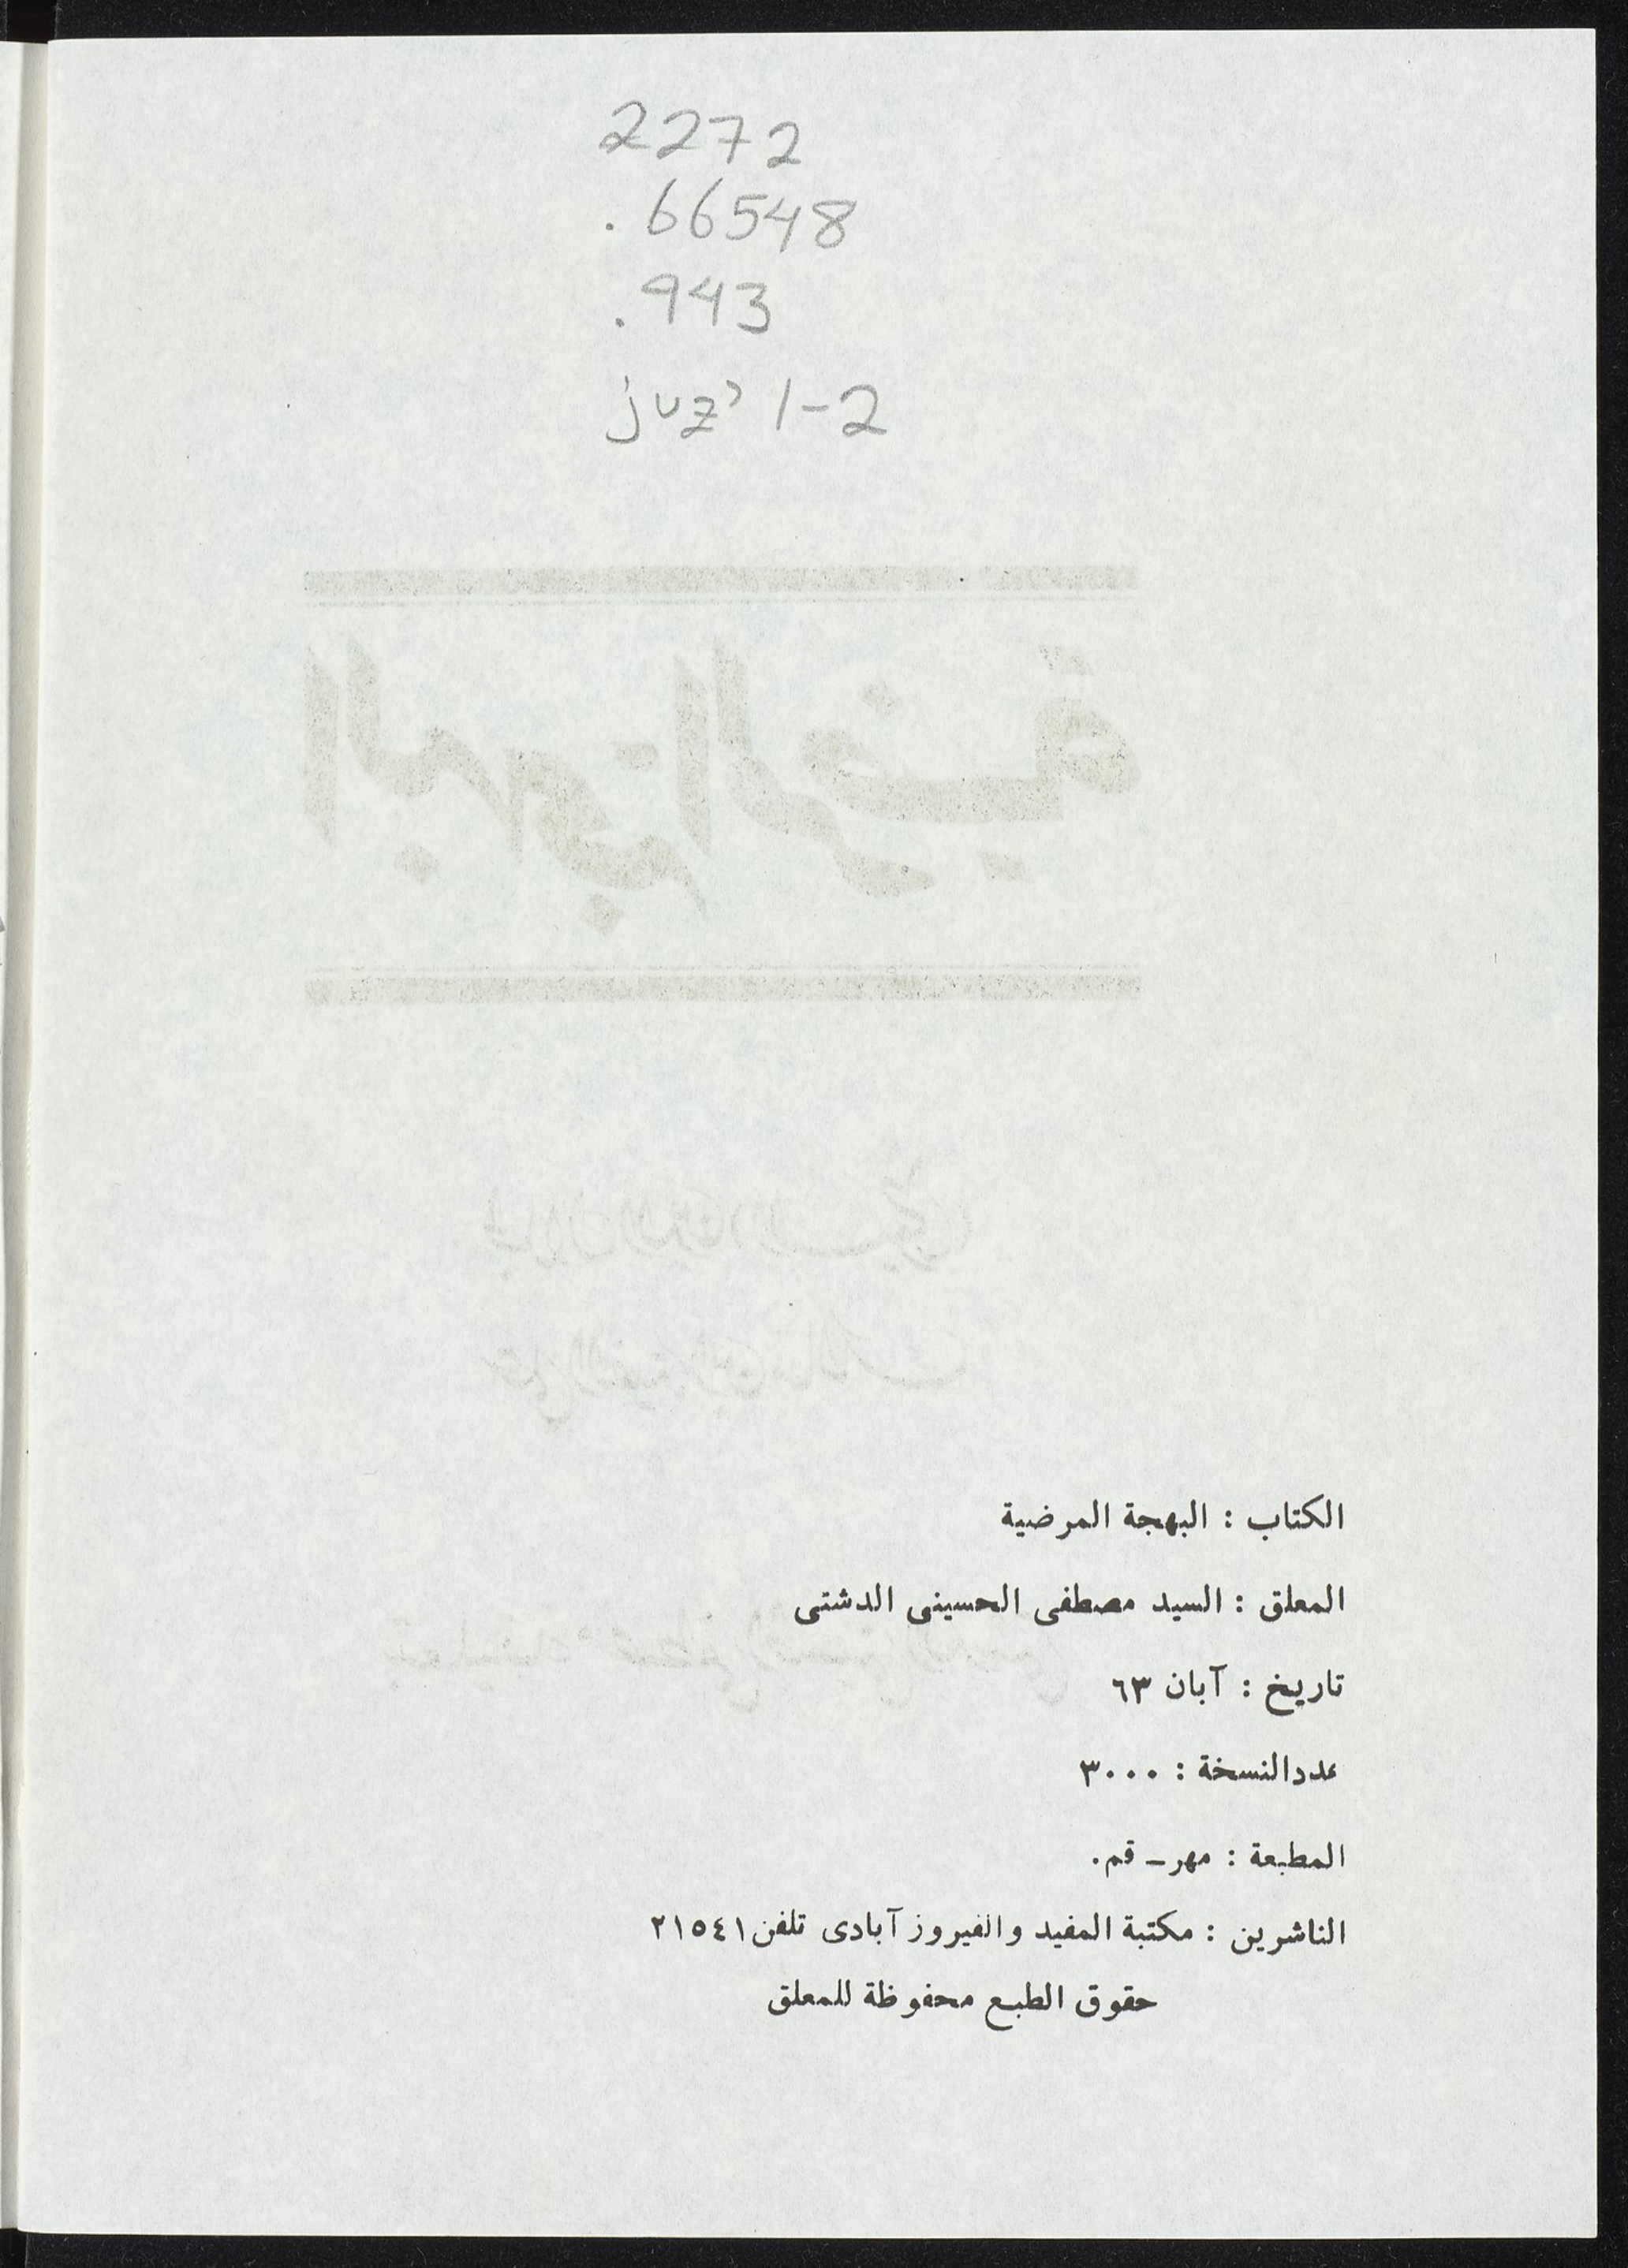 2272
.66548
.943
juz' 1-2
الكتاب : البهجة المرضية
المعلق : السيد مصطفى الحسينى الدشتى
تاريخ : آبان ٦٣
عددالنسخة : ٣٠٠٠
المطبعة : مهر ـ قم.
الناشرين : مكتبة المفيد والفيروز آبادى تلفن ٢١٥٤١
حقوق الطبع محفوظة للمعلق